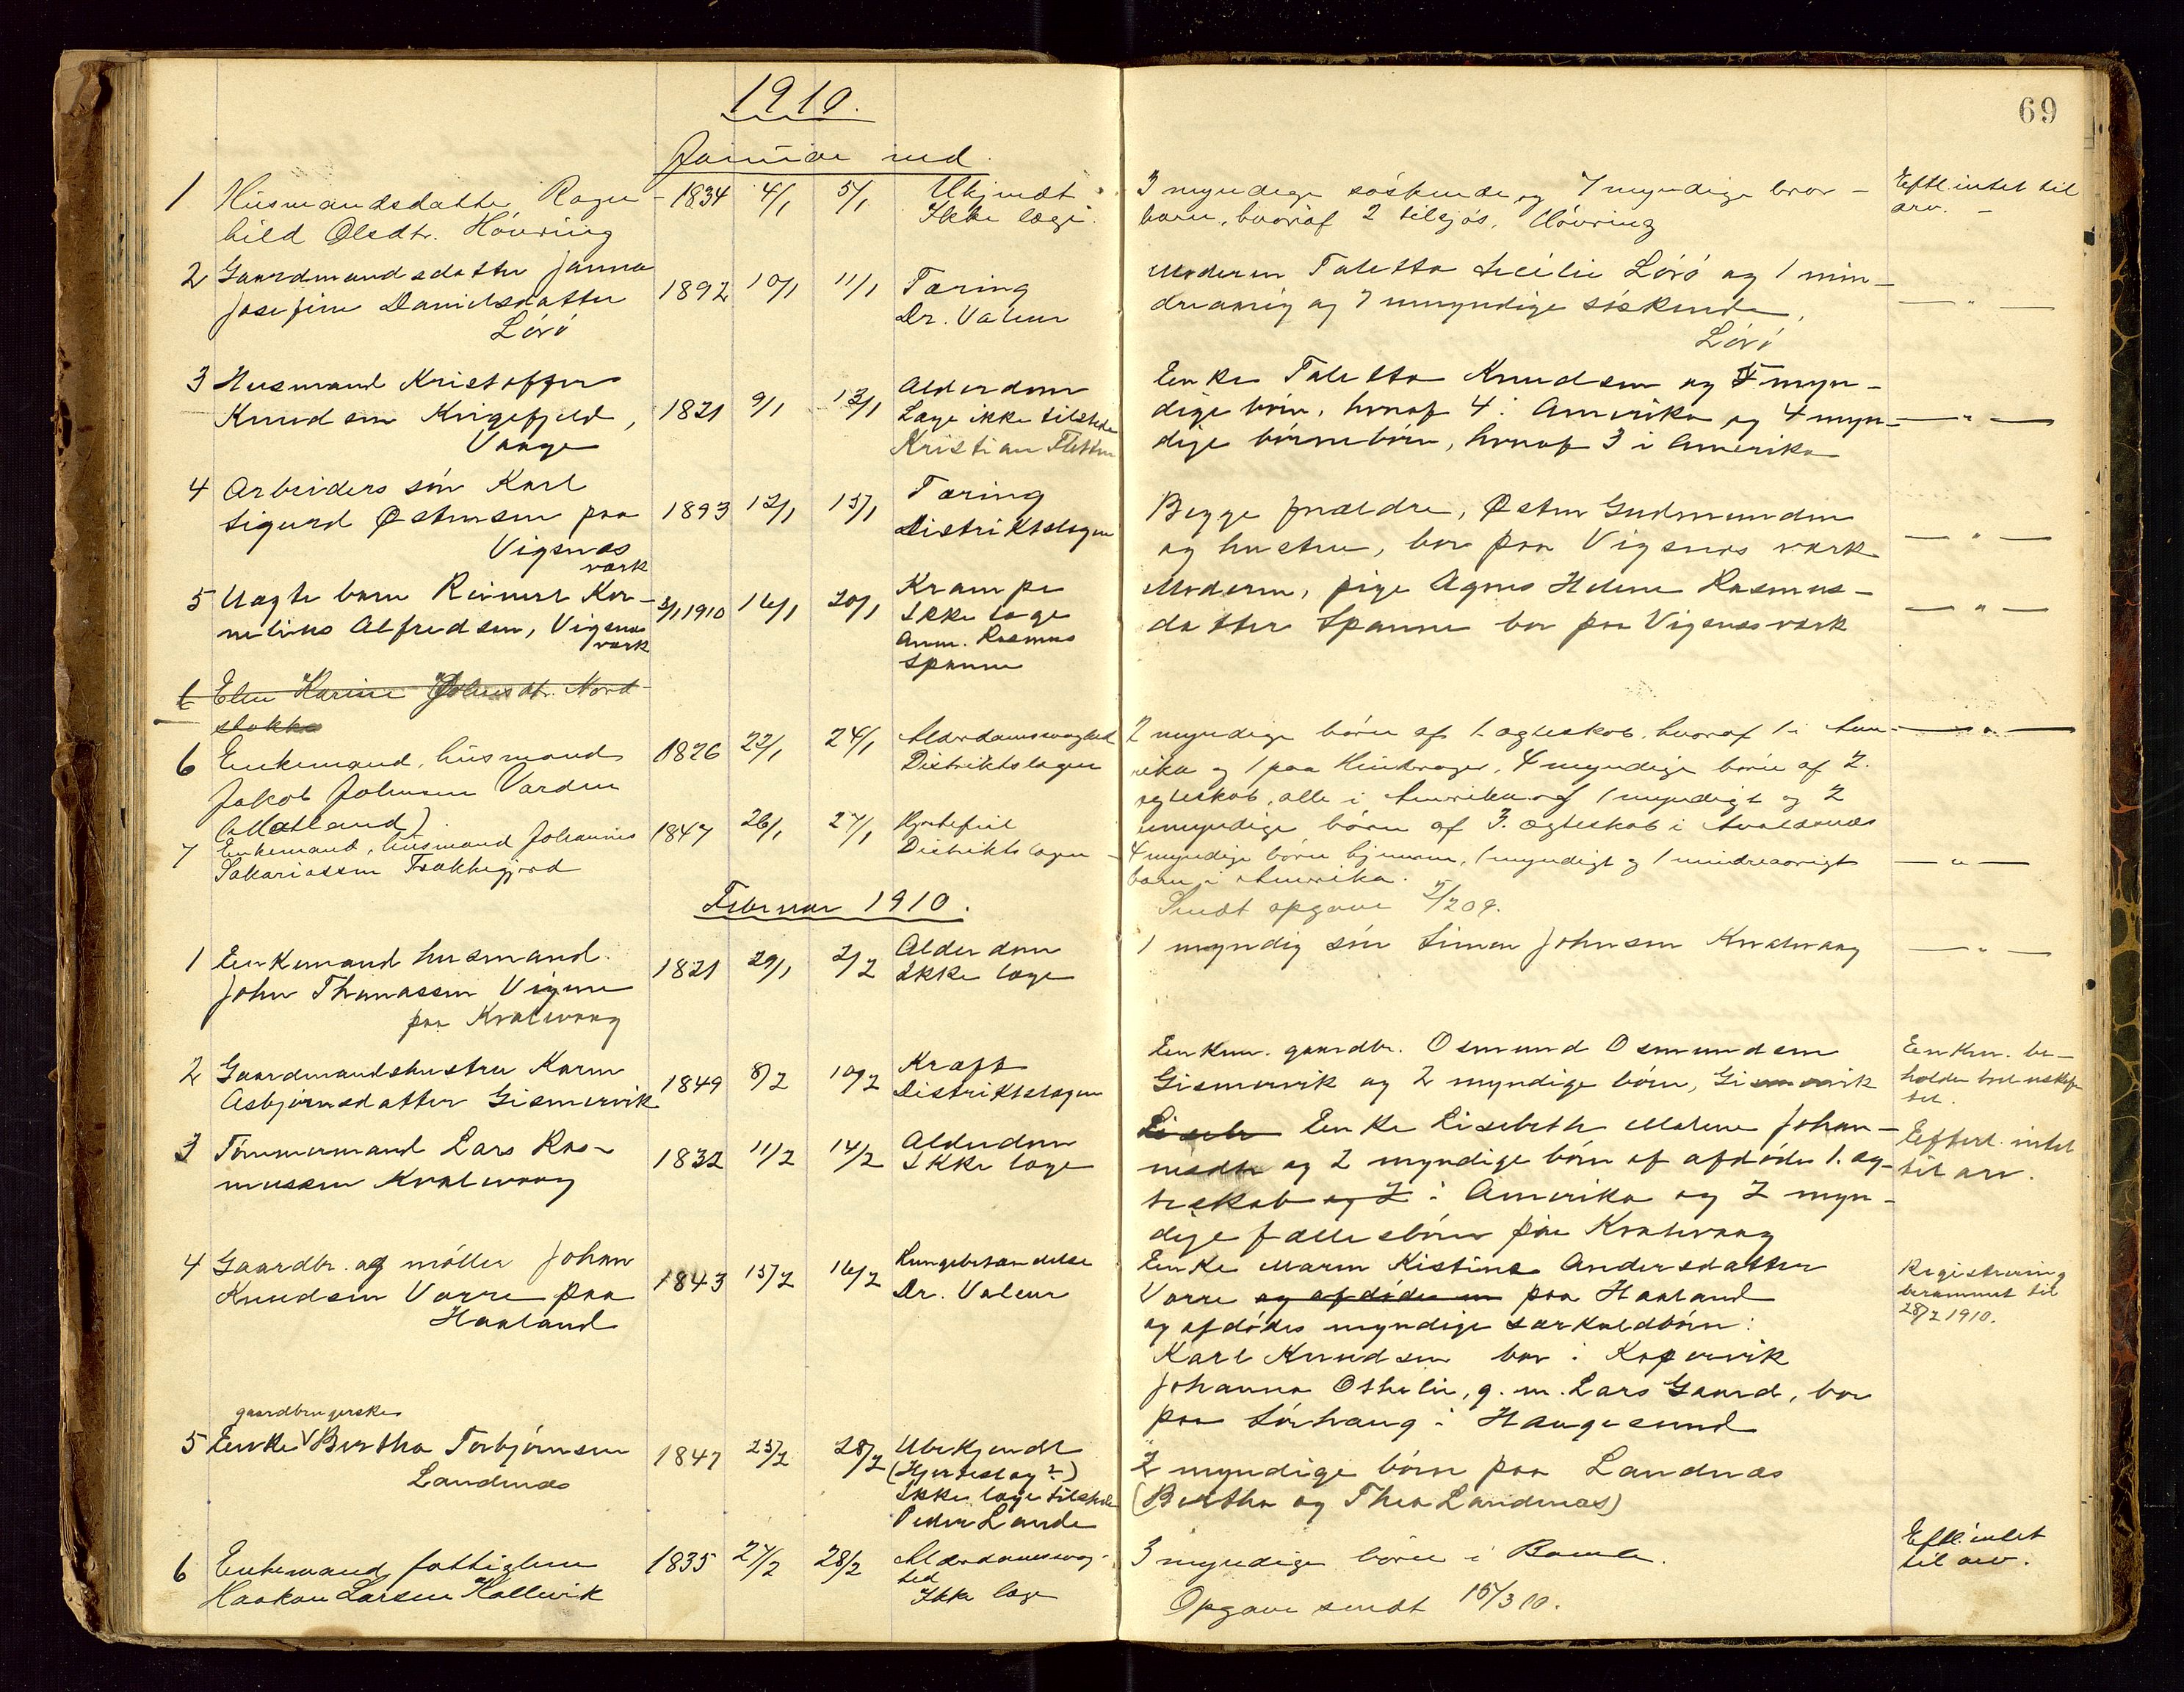 1910.
69
Januar md.
1 Husmandsdatter Ragn- 1834 4/1 5/1 Ukjendt 3 myndige söskende og 7 myndige bror- Eftl. intet til
hild Olsdtr. Hövring Ikke læge. barn, hvoraf 2 tilsjös, Hövring arv.
2 Gaardmandsdatter Janna Moderen Taletta Secilie Lövö og 1 min-
Josefine Danielsdatter 1892 10/1 11/1 Tæring dreaarig og 7 umyndige söskende, — " —
Lövö Dr. Valeur Lövö
3 Husmand Kristoffer Alderdom Enke Taletta Knudsen og 7 myn-
Knudsen Krigefjeld, 1821 9/1 13/1 Læge ikke tilstede dige börn, hvoraf 4 i Amerika og 4 myn- — " —
Vaage Kristian Fletten dige börnebörn, hvoraf 3 i Amerika
4 Arbeiders sön Karl Tæring Begge forældre, Østen Gudmundsen
Sigurd Østensen paa 1893 12/1 15/1 Distriktslægen og hustru, bor paa Vigsnæs værk — " —
Vigsnæs
værk
5 Uægte barn Reinert Kor- 3/1 1910 16/1 20/1 Krampe Moderen, pige Agnes Helene Rasmus-
nelius Alfredsen, Vigsnæs Ikke læge datter Spanne bor paa Vigsnæs værk — " —
værk Anm. Rasmus
Spanne
6 Elen Karine Johnsdtr. Nord-
stokke
6 Enkemand, husmand 1826 22/1 24/1 Alderdomssvaghed 2 myndige börn af 1. ægteskab, hvoraf 1 i Ame- — " —
Jakob Johnsen Varden Distriktslægen rika og 1 paa, 4 myndige börn af 2.
(Matland). ægteskab, alle i Amerika og 1 myndigt og 2
7 Enkemand, husmand Johannes 1847 26/1 27/1 Hjertefeil umyndige börn af 3. ægteskab i Avaldsnæs
Sakariassen Distriktslægen 4 myndige börn hjemme, 1 myndigt og 1 mindreaarigt — " —
barn i Amerika.
Februar 1910. Sendt opgave 5/2 09.
1 Enkemand husmand 1821 29/1 2/2 Alderdom 1 myndig sön Simon Johnsen Kvalevaag — " —
John Thomassen Vigene Ikke læge
paa Kvalevaag
2 Gaardmandshustru Karen 1849 8/2 10/2 Kræft Enkem. gaardbr. Osmund Osmundsen Enkm. be-
Asbjörnsdatter Gismervik Distriktslægen Gismervik og 2 myndige börn, Gismervik holder boet uskif-
tet.
3 Tömmermand Lars Ras- 1832 11/2 14/2 Alderdom Liseb Enke Lisebeth Malene Johan- Efterl. intet
mussen Kvalevaag Ikke læge nesdtr og 2 myndige börn af afdödes 1. æg- til arv.
teskab og 2 i Amerika og 2 myn-
dige fællesbörn paa Kvalevaag
4 Gaardbr. og möller Johan 1843 15/2 16/2 Lungebetændelse Enke Maren Kistine Andersdatter Registrering
Knudsen Varre paa Dr. Valeur Varre og afdöde en paa Haaland berammet til
Haaland og afdödes myndige særkuldbörn: 28/2 1910.
Karl Knudsen bor i Kopervik
Johanna Othelie, g. m. Lars Gaard, bor
paa Sörhaug i Haugesund
gaardbrugerske
5 Enke Bertha Torbjörnsen 1847 25/2 28/2 Ubekjendt 2 myndige börn paa Landnæs
Landnæs (Hjerteslag?) (Bertha og Thea Landnæs)
Ikke læge tilstede
Peder Lande
6 Enkemand, fattiglem 1835 27/2 28/2 Alderdomssvag- 3 myndige börn i Eftl. intet
Haakon Larsen Hallevik hed til arv.
Ikke læge Opgave sendt 15/3 10.